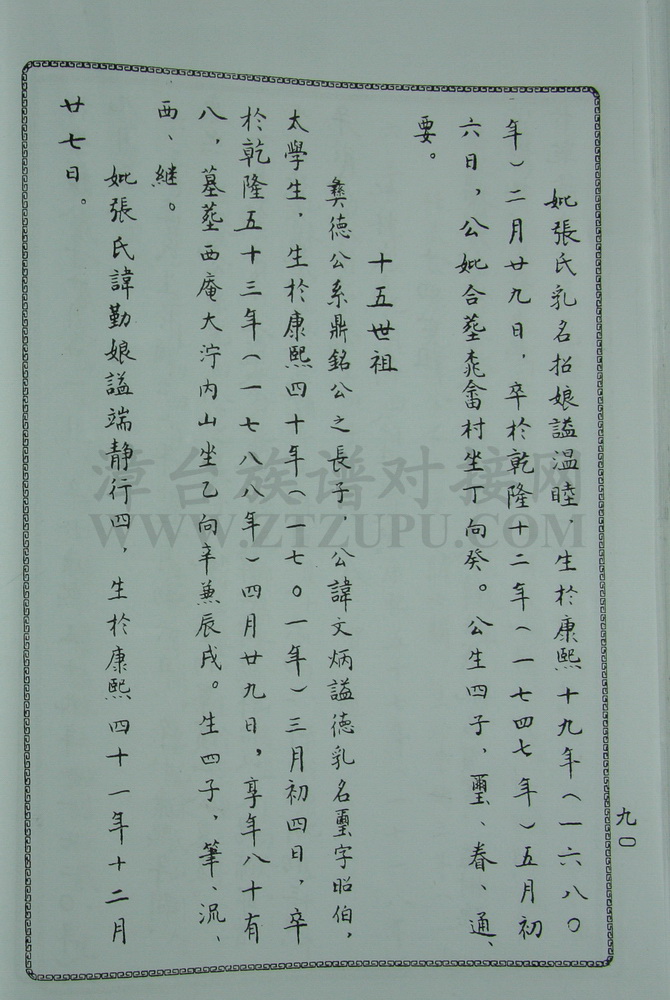 妣張氏乳名招娘謚温睦，生於康熙十九年（一六八〇
年）二月廿九日，卒於乾隆十二年（一七四七年）五月初
六日，公妣合塟畲村坐丁向癸。公生四子、璽、春、通、
要。
十五世祖
彝德公系鼎銘公之長子，公諱文炳謚德乳名璽字昭伯，
太學生，生於康熙四十年（一七〇一年）三月初四日，卒
於乾隆五十三年（一七八八年）四月廿九日，享年八十有
八，墓塟西庵大泞内山坐乙向辛兼辰戌。生四子，筆、沉、
西、継。
妣張氏諱勤娘謚端静行四，生於康熙四十一年十二月
廿七日。
九〇
漳台族谱对接网
WWW.ZTZUPU.COM